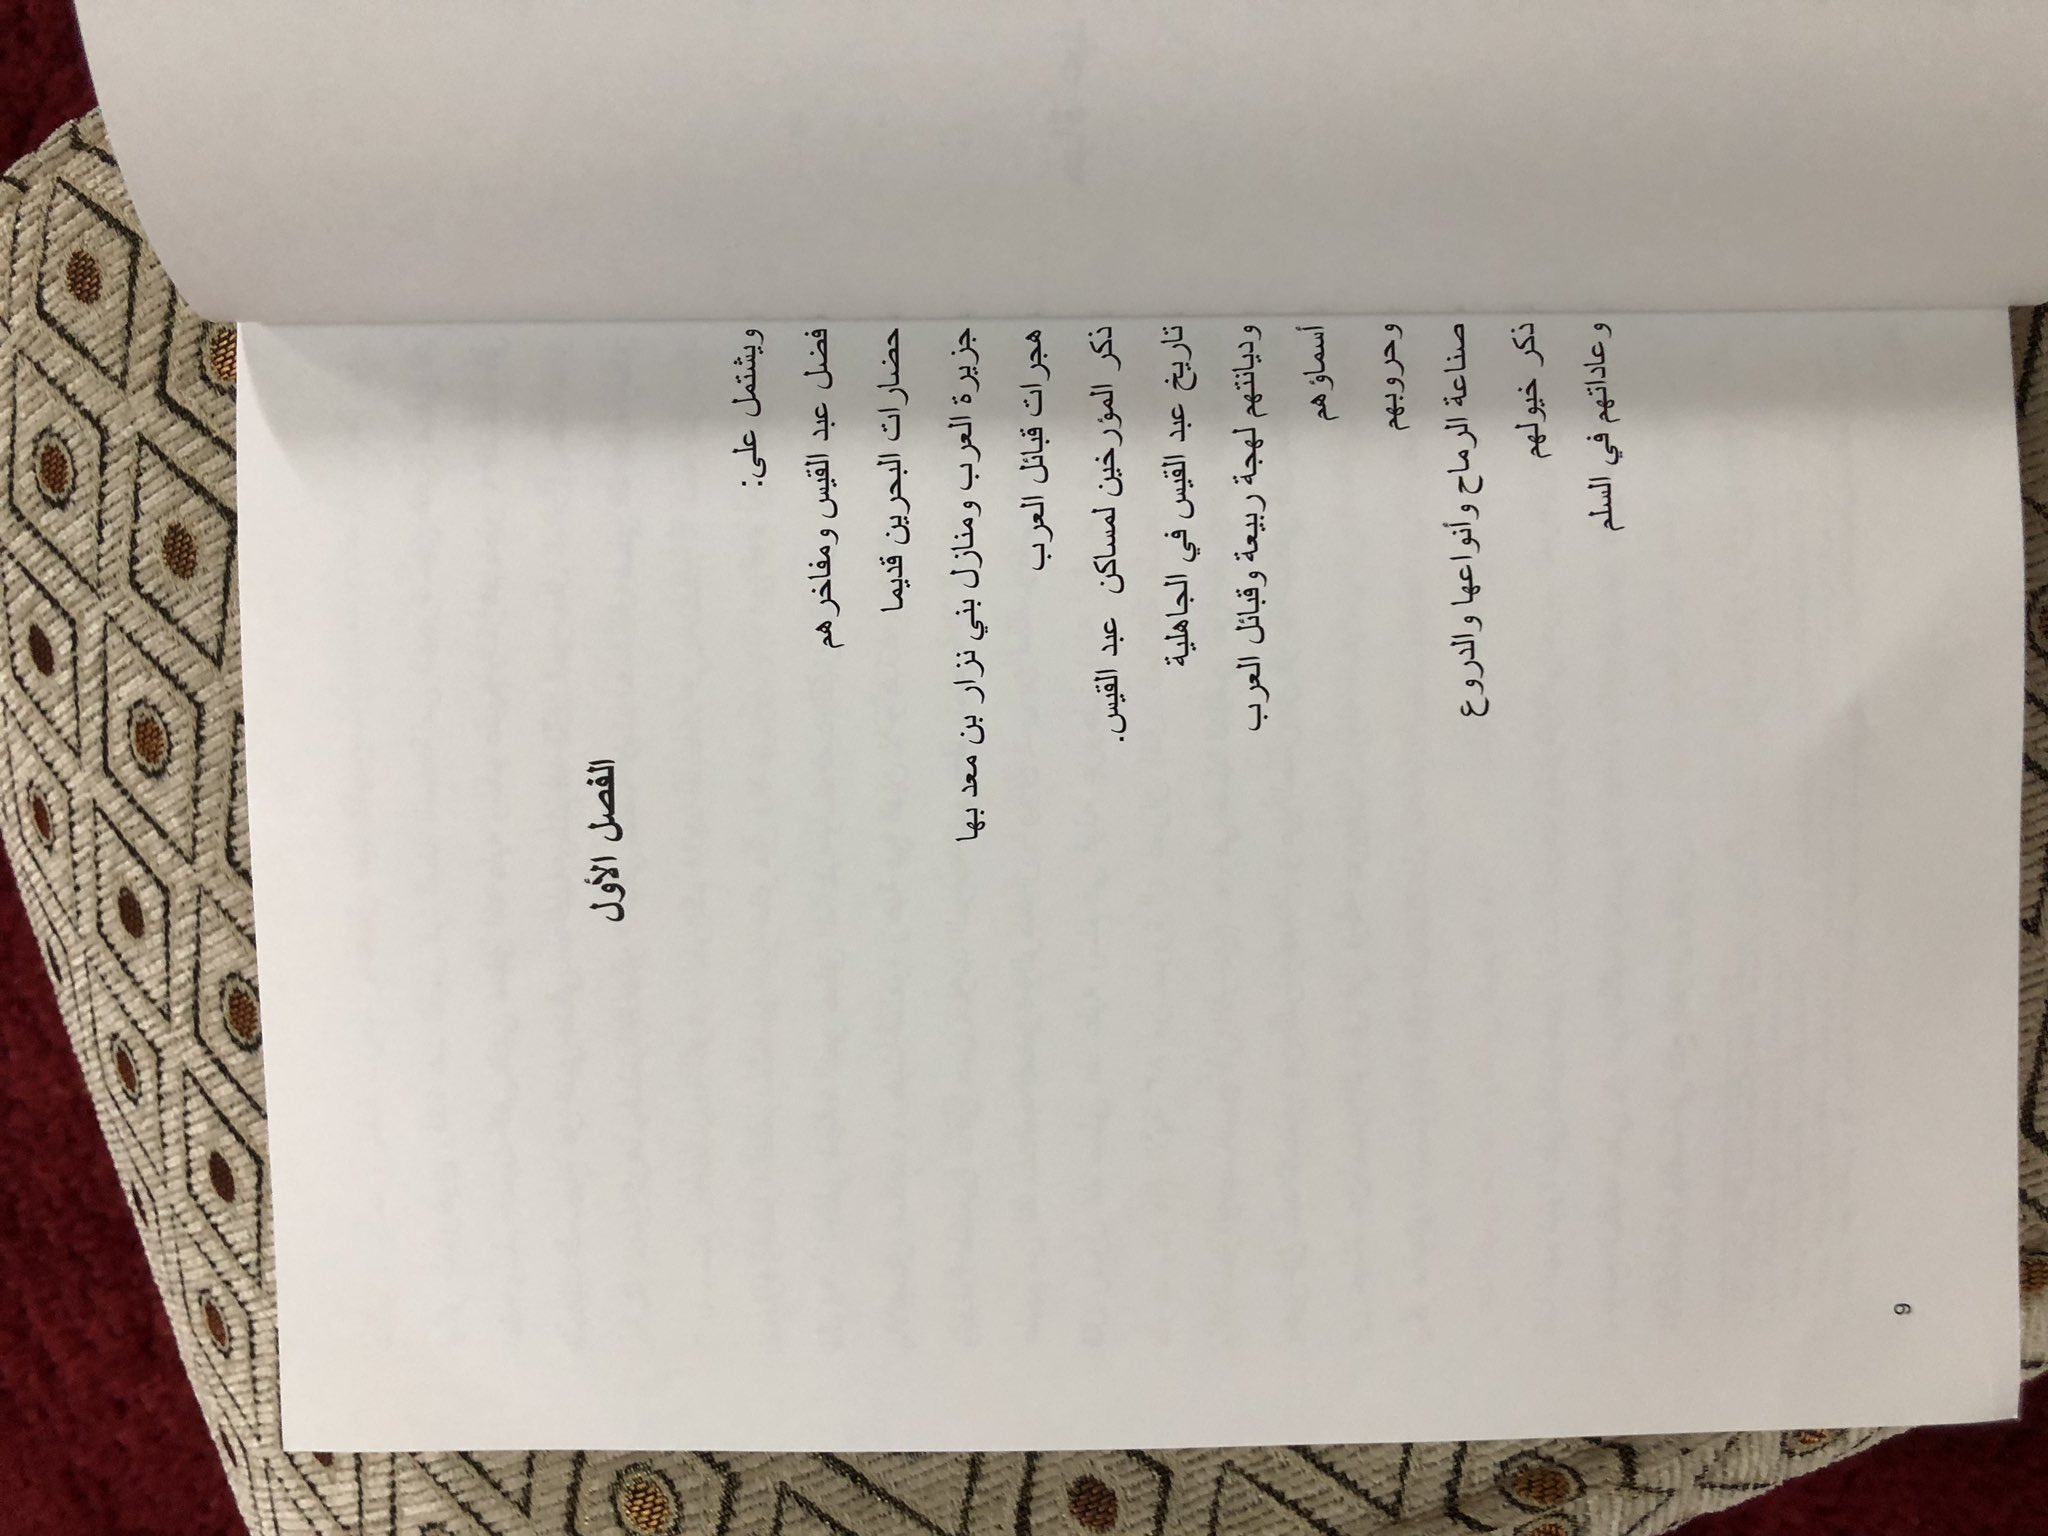 الفصل الأول
ويشتمل على:
فضل عبد القيس ومفاخرهم
حضارات البحرين قديما
جزيرة العرب ومنازل بني نزار بن معد بها
هجرات قبائل العرب
ذكر المؤرخين لمساكن عبد القيس.
تاريخ عبد القيس في الجاهلية
وديانتهم لهجة ربيعة وقبائل العرب
أسماؤهم
وحروبهم
صناعة الرماح وأنواعها والدروع
ذكر خيولهم
وعاداتهم في السلم
9